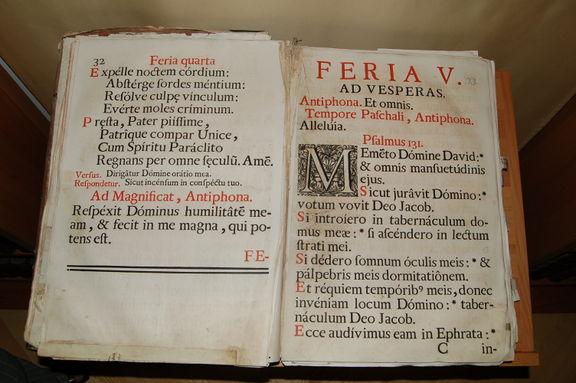 32 Feria quarta
Expélle noctem córdium:
Abstérge sordes méntium:
Resólve culpę vínculum:
Evérte moles criminum.
Pręsta, Pater piissime,
Patrique compar Unice,
Cum Spíritu Paráclito
Regnans per omne sęculũ. Amē.
Versus. Dirigátur Dómine orátio mea.
Respondetur. Sicut incénsum in conspéctu tuo.
Ad Magnificat, Antiphona.
Respéxit Dóminus humilitátē me-
am, & fecit in me magna, qui po-
tens est.
FE-
FERIA V. 33
AD VESPERAS.
Antiphona. Et omnis.
Tempore Paschali, Antiphona.
Allelúia.
Psalmus 131.
MEméto Dómine David: *
& omnis mansuetúdinis
ejus.
Sicut jurávit Dómino: *
votum vovit Deo Jacob.
Si introíero in tabernáculum do-
mus meæ: * si ascéndero in lectum
strati mei.
Si dédero somnum óculis meis: * &
pálpebris meis dormitatiónem.
Et réquiem tempóribꝰ meis, donec
invéniam locum Dómino: * taber-
náculum Deo Jacob.
Ecce audívimus eam in Ephrata: *
C in-